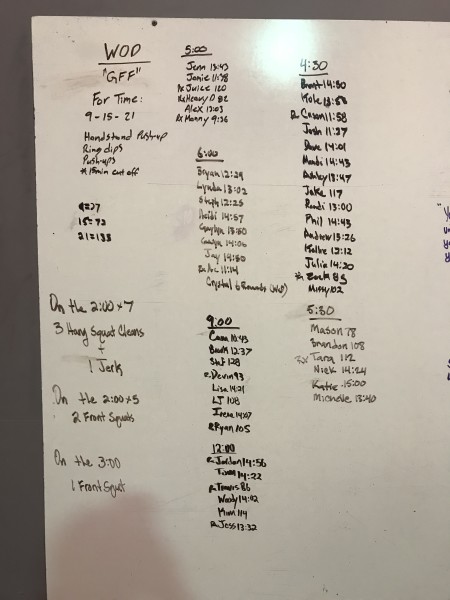 WOD
"GFF"
For Time:
9-15-21
Handstand Push-up
Ring dips
Push-ups
*15min cut off
9=27
15=72
21=135
On the 2:00 x 7
3 Hang Squat Cleans
+
1 Jerk
On the 2:00 x 5
2 Front Squats
On the 3:00
1 Front Squat
5:00
Jenn 13:43
Jamie 11:38
Rx Juice 120
Rx Heavy D 82
Alex 13:03
Rx Manny 9:36
6:00
Bryan 12:29
Lynda 13:02
Steph 12:25
Heidi 14:57
13:50
14:06
Jay 14:50
11:14
Crystal 6 Rounds
9:00
Cara 10:43
12:37
Stef 128
Devin 93
Lisa 14:21
LJ 108
Irene 14:07
Ryan 105
12:00
Jordan 14:56
14:22
Travis 86
Woody 14:02
Mimi 114
Jess 13:32
4:30
Brent 14:50
Kole 13:58
Rx Carson 11:58
Josh 11:27
Dave 14:01
Mandi 14:43
Ashley 13:47
Jake 117
Randi 13:00
Phil 14:43
Andrew 13:26
Kallie 12:12
Julia 14:20
Rx Zack 85
Missy 102
5:30
Mason 78
Brandon 108
Rx Tara 112
Nick 14:24
Katie 15:00
Michelle 13:40